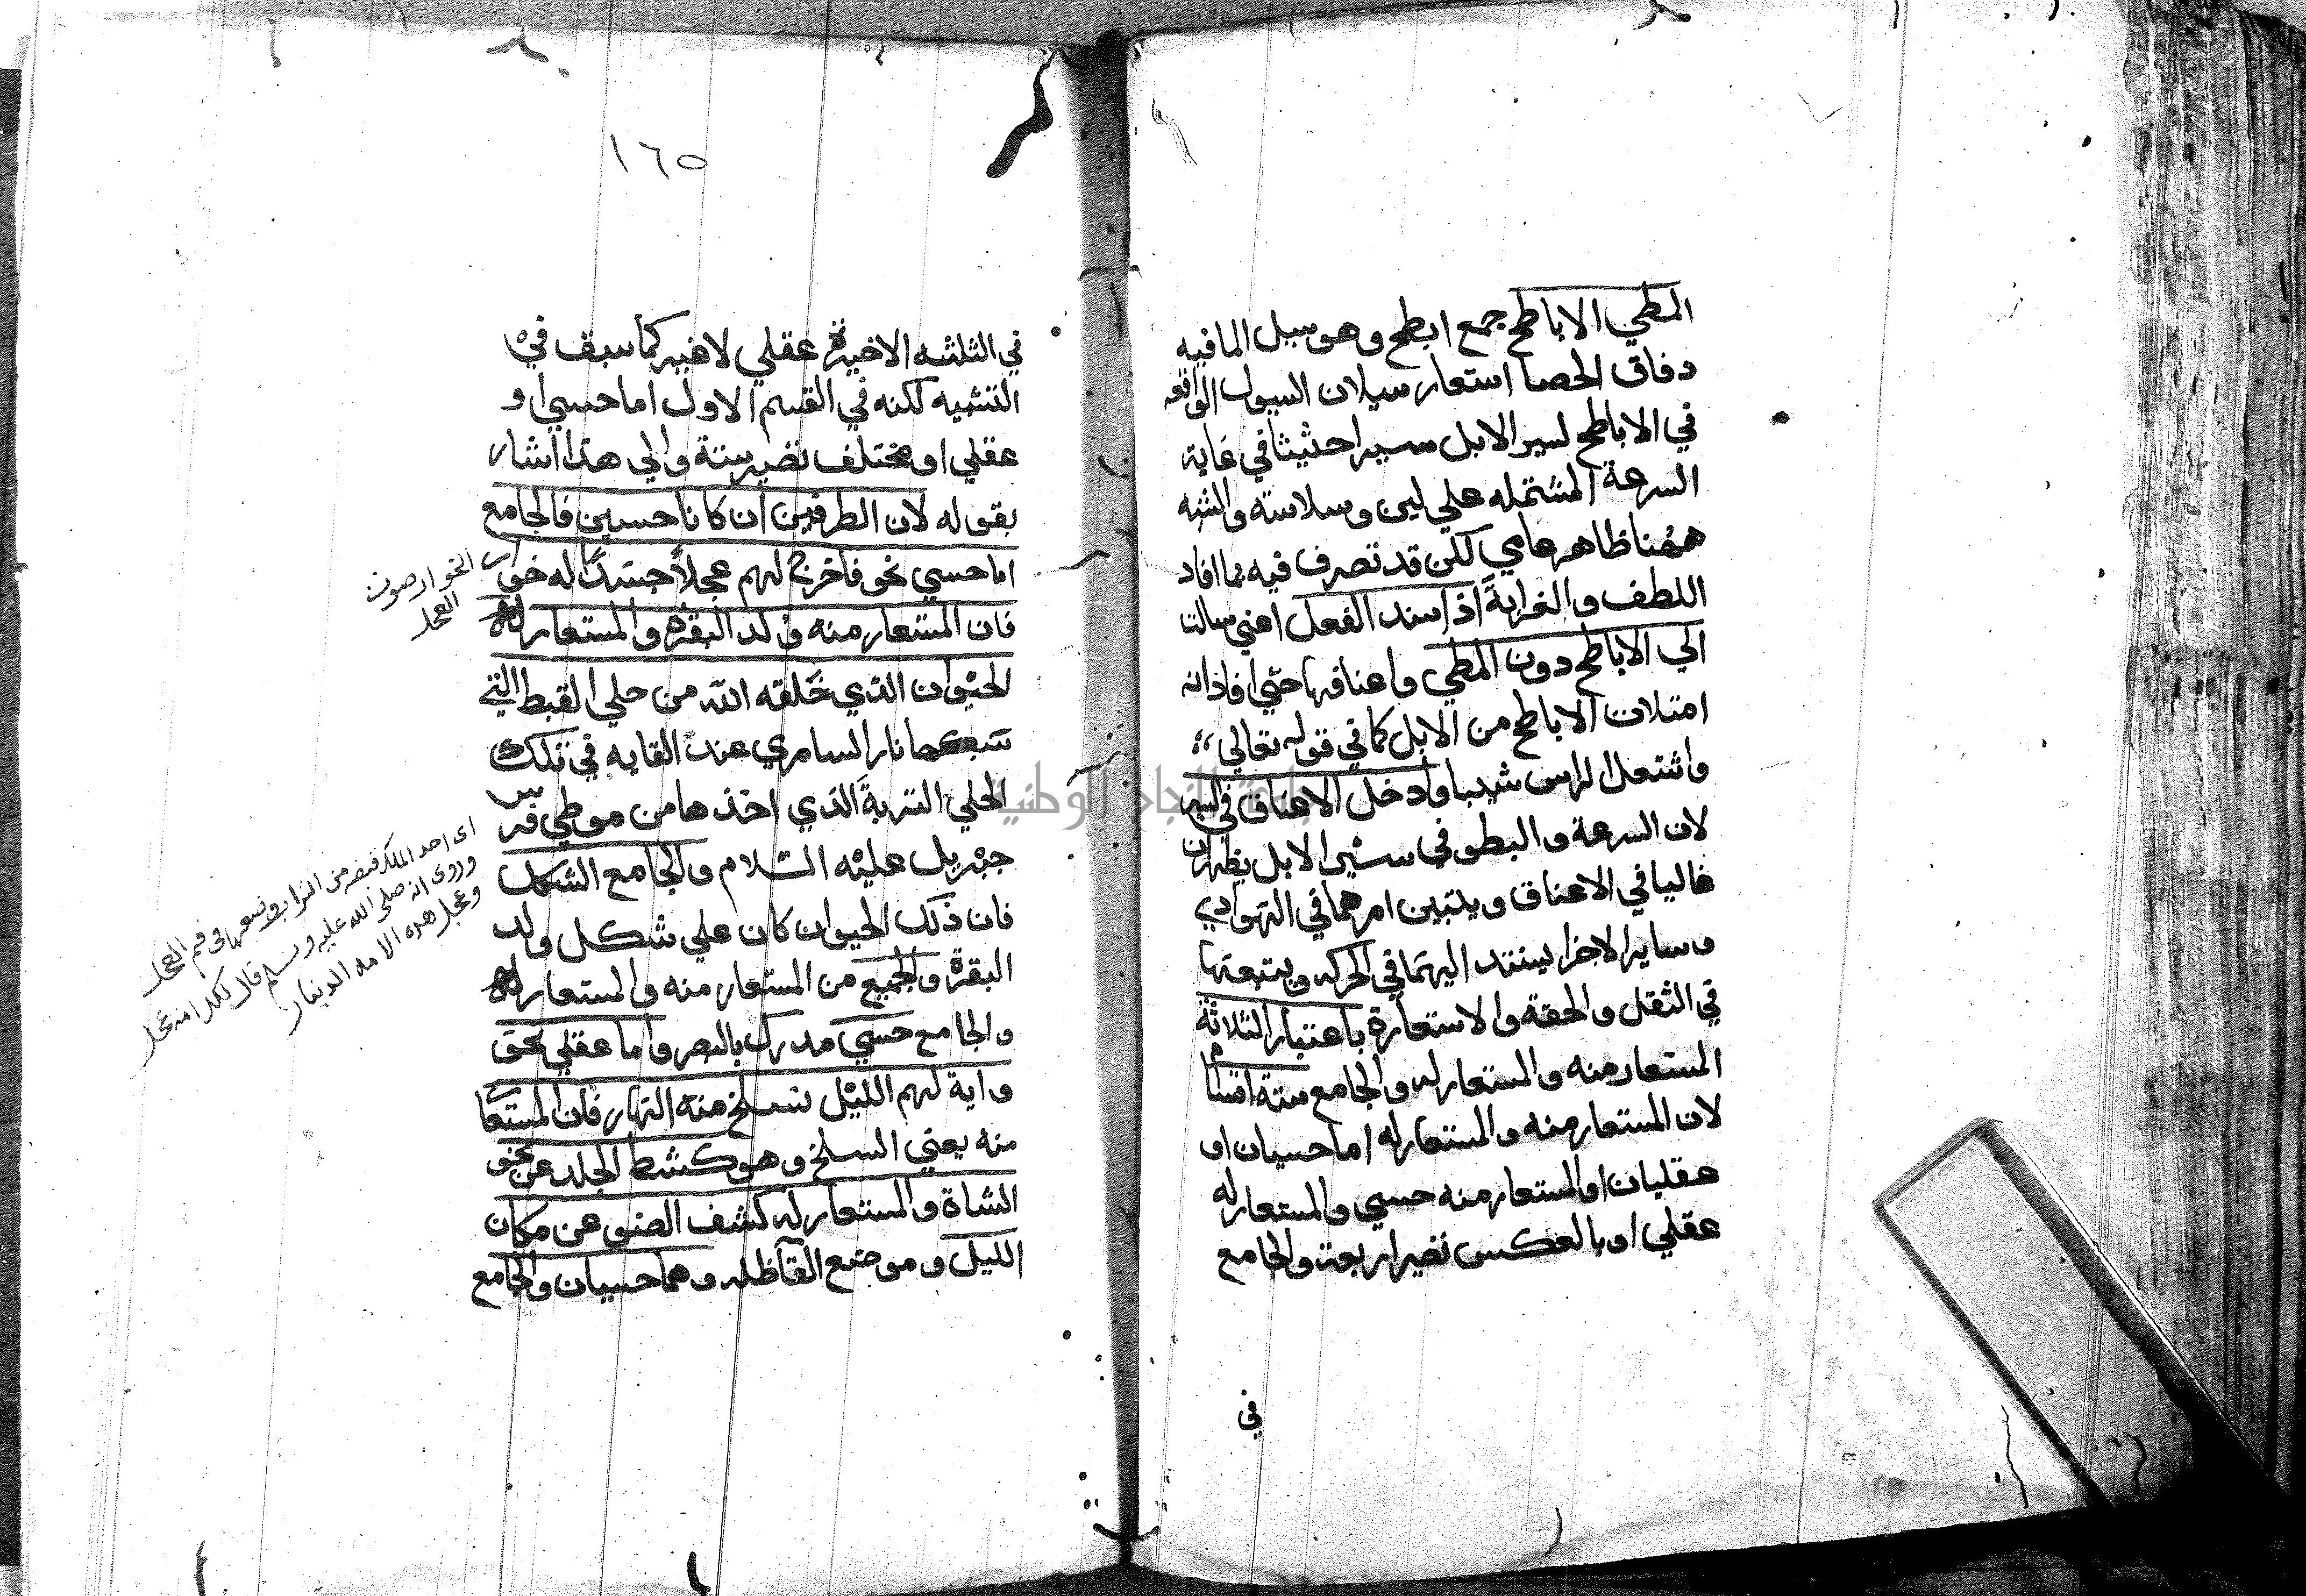 المطي الاباطح جمع ابطح وهو سيل الما فيه
دقاق الحصا استعار سيلان السيول الواقعه
في الاباطح لسير الابل سيرا حثيثا في غاية
السرعة المشتمله علي لين وسلاسته والشبه
ههنا ظاهر عامي لكن قد تصرف فيه بما افاد
اللطف والغرابة اذ اسند الفعل اعني سالت
الي الاباطح دون المطي واعناقها حتي افاد انه
امتلات الاباطح من الابل كما في قوله تعالي
واشتعل الراس شيبا وادخل الاعناق في السير
لان السرعة والبطو في سير الابل يظهران
غالبا في الاعناق ويتبين امرهما في الهوادي
وساير الاجزا يستند اليهما في الحركه ويتبعها
في الثقل والخفة والاستعارة باعتبار الثلاثة
المستعار منه والمستعار له والجامع ستة اقسام
لان المستعار منه والمستعار له اما حسيان او
عقليان او المستعار منه حسي والمستعار له
عقلي او بالعكس تصير اربعة والجامع
في
١٦٥
في الثلثه الاخيرة عقلي لا غير كما سبق في
التشبيه لكنه في القسم الاول اما حسي او
عقلي او مختلف تصير ستة والي هذا اشار
بقوله لان الطرفين ان كانا حسيين فالجامع
اما حسي نحو فاخرج لهم عجلا جسدا له خوار
فان المستعار منه ولد البقرة والمستعار له
الحيوان الذي خلقه الله من حلي القبط التي
سبكها نار السامري عند القايه في تلك
الحلي التربة الذي اخذها من موطي فرس
جبريل عليه السلام والجامع الشكل
فان ذلك الحيوان كان علي شكل ولد
البقرة والجميع من المستعار منه والمستعار له
والجامع حسي مدرك بالبصر واما عقلي نحو
واية لهم الليل نسلخ منه النهار فان المستعا
منه يعني السلخ وهو كشط الجلد عن نحو
الشاة والمستعار له كشف الضو عن مكان
الليل وموضع القا ظله وهما حسيان والجامع
الخوار صوت
العجل
اى احد الملك قبضه من التراب ووضعها فى فم العجل
وروى انه صلى الله عليه وسلم قال لكل امه عجل
وعجل هده الامه الدينار